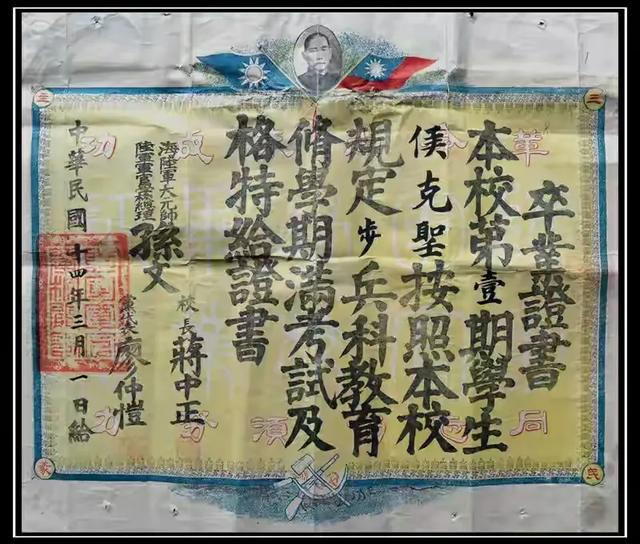 卒業證書
本校第壹期學生
侯克聖按照本校
規定步兵科教育
脩學期滿考試及
格特給證書
海陸軍大元帥
陸軍軍官學校總理
孫文
校長
蔣中正
黨代表
廖仲愷
中華民國十四年三月一日給
革
成功
同
須
力
三
民